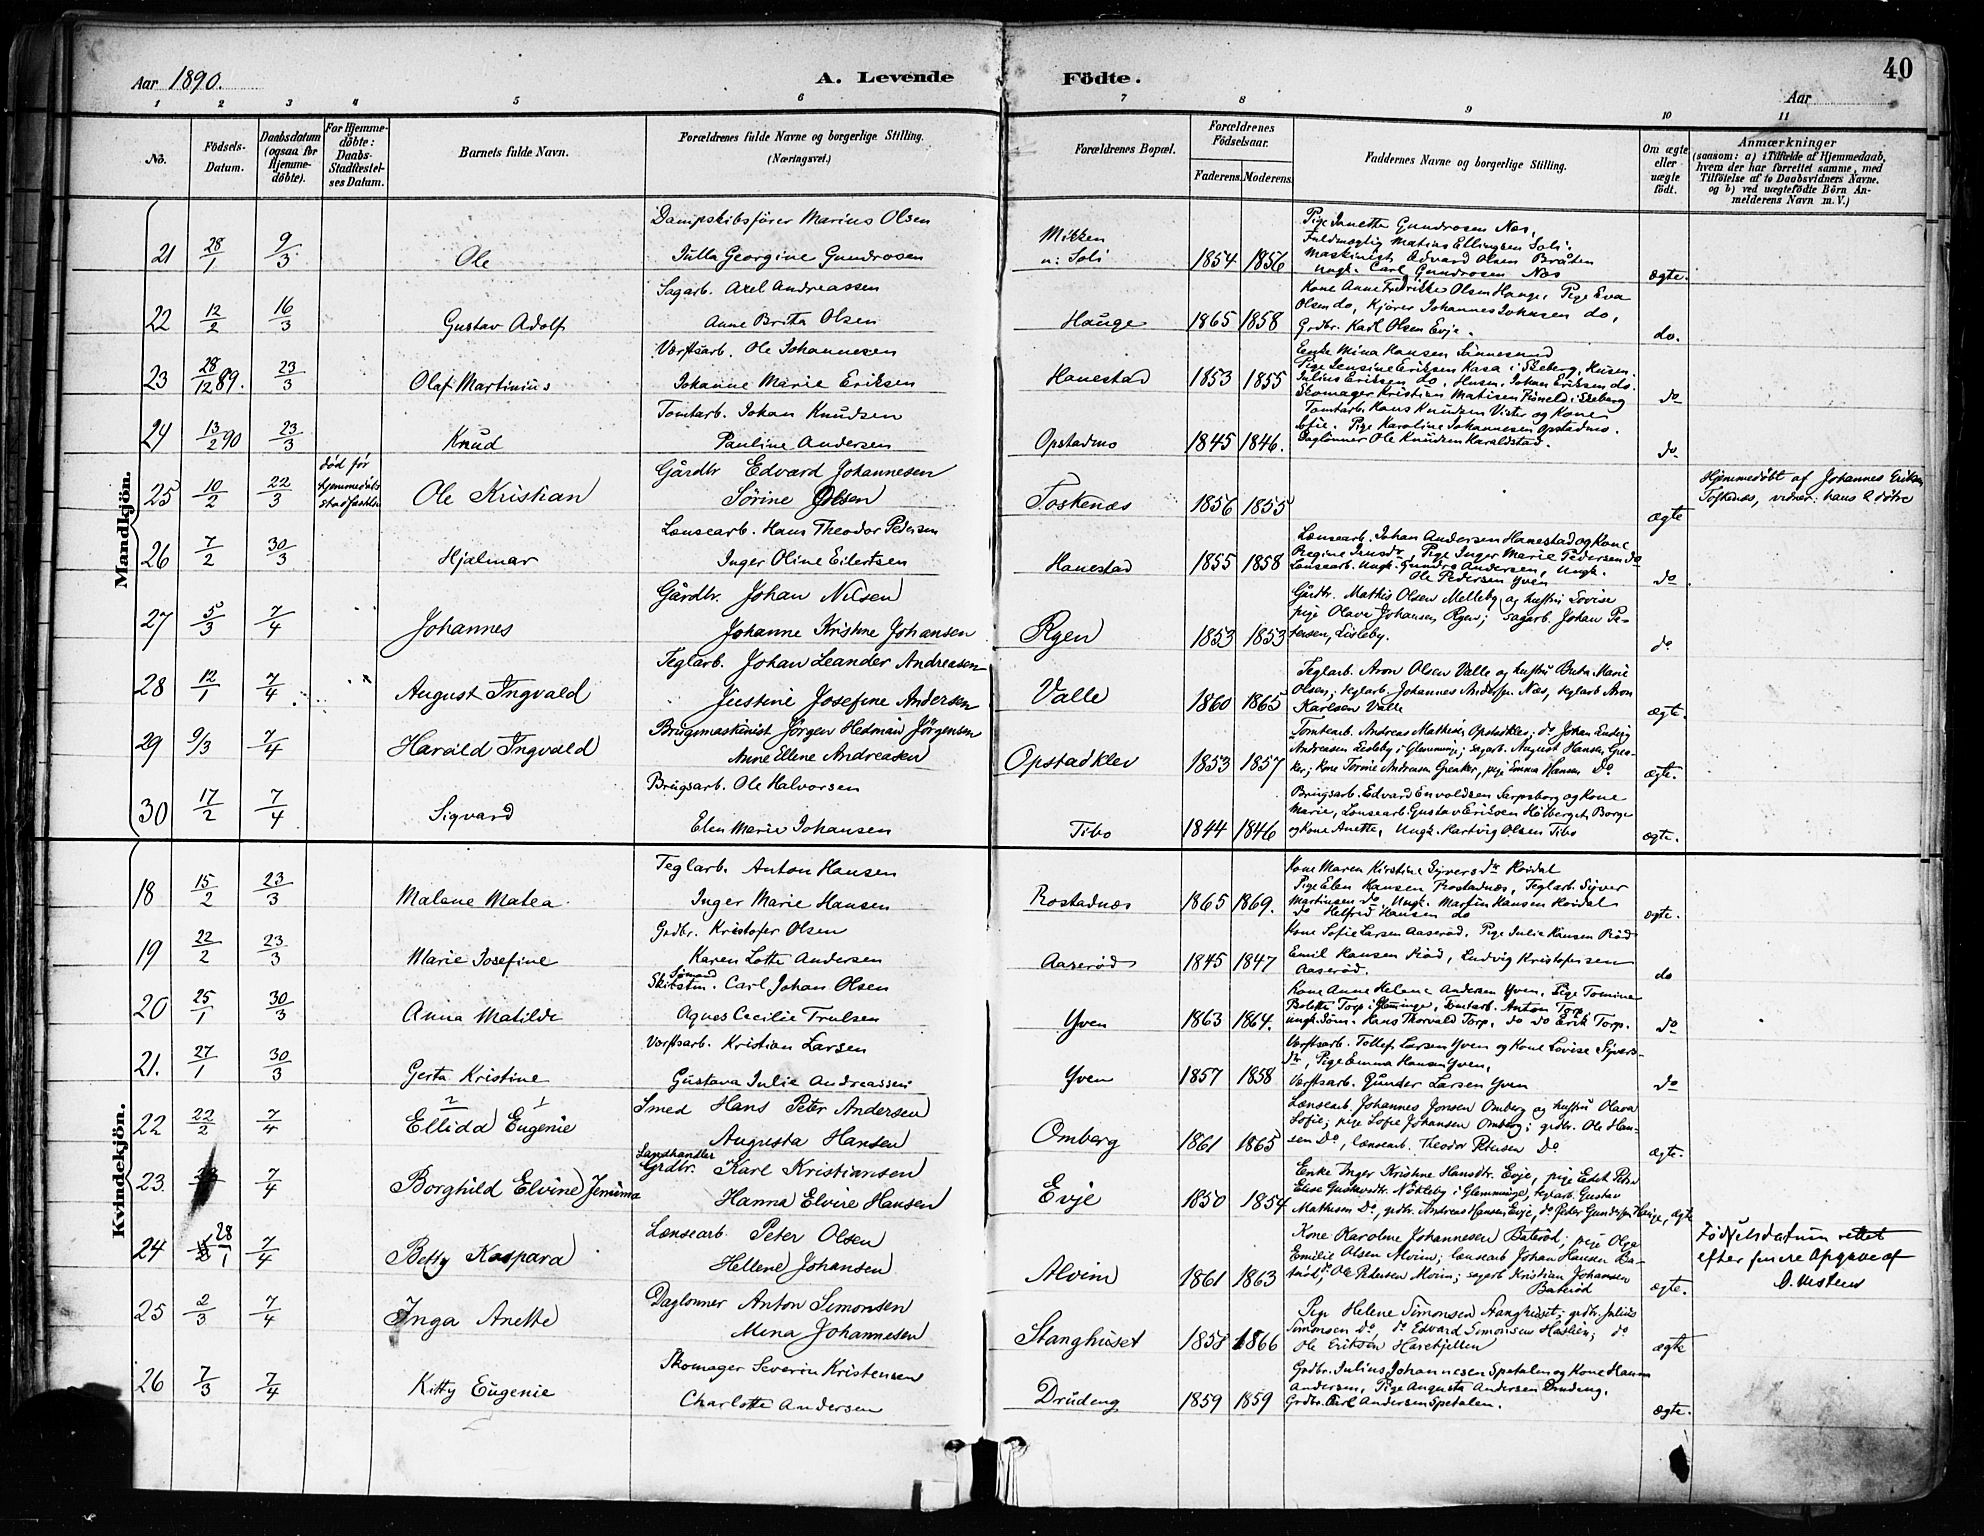 Aar 1890.
A. Levende Födte.
40
Aar
1 2 3 4 5 6 7 8 9 10 11
No.
Födsels-Datum.
Daabsdatum (ogsaa for Hjemme-döbte).
For Hjemme-döbte: Daabs-Stadfæstel-ses Datum.
Barnets fulde Navn.
Forældrenes fulde Navne og borgerlige Stilling. (Næringsvei.)
Forældrenes Bopæl.
Forældrenes Födselsaar.
Faderens. Moderens.
Faddernes Navne og borgerlige Stilling.
Om ægte eller uægte födt.
Anmærkninger
(saasom: a) i Tilfælde af Hjemmedaab, hvem der har forrettet samme, med Tilföielse af to Daabsvidners Navne, og b) ved uægtefödte Börn An-melderens Navn m. V.)
Mandkjön.
21 28/1 9/3 Ole
Dampskibsfører Marius Olsen
Julla Georgine Gundrosen
Mikken u: Soli 1854 1856
Pige Janette Gundrosen Næs,
Fuldmægtig Matius Ellingsen Soli.
Maskinist Edvard Olsen Bråten
Ungk. Carl Gundrosen Næs
ægte.
22 12/2 16/3 Gustav Adolf
Sagarb. Axel Andreassen
Anne Brita Olsen
Hauge 1865 1858
Kone Anne Fredrikke Olsen Hauge, Pige Eva
Olsen do, Kjører Johannes Johnsen do,
Grdbr. Karl Olsen Evje.
do.
23 28/12 89. 23/3 Olaf Martinius
Værftsarb. Ole Johannesen
Johanne Marie Eriksen
Hanestad 1853 1855
Enke Mina Hansen Sannesund
Pige Lensine Eriksen Kasa i Skeberg, Husm.
Julius Eriksen do, Husm. Johan Eriksen do.
Skomager Kristian Matisen i Skeberg
do
24 13/2 90 23/3 Knud
Tomtarb. Johan Knudsen
Pauline Andersen
Opstadmo 1845 1846.
Tomtarb. Hans Knudsen Vister og Kone
Sofie. Pige Karoline Johannesen Opstadmo.
Daglønner Ole Knudsen Haraldstad.
do
25 10/2 22/3 død før hjemmedåbs stadfæstelse
Ole Kristian
Gårdbr Edvard Johannesen
Sørine Olsen
Toskenæs 1856 1855
ægte
Hjemmedøbt af Johannes Eriksen
Toskenæs, vidner: hans 2 døtre
26 7/2 30/3 Hjalmar
Lænsearb. Hans Theodor Pedersen
Inger Oline Eilertsen
Hanestad 1855 1858
Lænsearb. Johan Andersen Hanestad og Kone
Regine Jensdr, Pige Inger Marie Pedersen do
Lænsearb. Ungk. Gundro Andersen, Ungk.
Ole Pedersen Yven
do
27 5/3 7/4 Johannes
Gårdbr. Johan Nilsen
Johanne Kristine Johansen
Ryen 1853 1853
Gårdbr. Mathis Olsen Melleby og hustru Lovise
pige Olava Johansen Ryen; sagarb. Johan Pe-
tersen, Lisleby.
do
28 12/1 7/4 August Ingvald
Teglarb. Johan Leander Andreasen
Justine Josefine Andersen
Valle 1860 1865
Teglarb. Aron Olsen Valle og hustru Berta Marie
Olsen; teglarb. Johannes Andersen Næs, teglarb Aron
Karlsen Valle
ægte.
29 9/3 7/4 Harald Ingvald
Brugsmaskinist Jørgen Hedman Jörgensen
Anne Ellene Andreasen
Opstadklev 1853 1857
Tomtearb. Andreas Mathisen Opstadklev; do Johan Ludvig
Andreasen Lisleby i Glemminge; sagarb. August Hansen Grea-
ker; Kone Tomine Andreasen Greaker, pige Emma Hansen Do
ægte.
30 17/2 7/4 Sigvard
Brugsarb. Ole Halvorsen
Elen Marie Johansen
Tibo 1844 1846
Brugsarb. Edvard Envoldsen Sarpsborg og Kone
Marie, Lænsearb. Gustav Eriksen Hölberget, Borge
og Kone Anette, Ungk. Hartvig Olsen Tibo
ægte.
Kvindekjön.
18 15/2 23/3 Malene Matea
Teglarb. Anton Hansen
Inger Marie Hansen
Rostadnæs 1865 1869.
Kone Maren Kirstine Syversdr Roidal
Pige Elen Hansen Rostadnæs, Teglarb. Syver
Martinsen do Ungk. Martin Hansen Roidal
do Helfred Hansen do
ægte.
19 22/2 23/3 Marie Josefine
Grdbr. Kristofer Olsen
Karen Lotte Andersen
Aaserød 1845 1847
Kone Sofie Larsen Aaserød. Pige Julie Hansen Rød
Emil Hansen Rød, Ludvig Kristofersen
Aaserød.
do
20 25/1 30/3 Anna Matilde
Sømand
Carl Johan Olsen
Agnes Cecilie Trulsen
Yven 1863 1864.
Kone Anne Helene Andersen Yven, Pige Tomine
Bolette Torp i Glemminge, Tomtarb. Anton Torp,
ungk. Hans Thorvald Torp, do do Erik Torp.
do
21. 27/1 30/3 Gerta Kristine
Værftsarb. Kristian Larsen
Gustava Julie Andreassen
Yven 1857 1858
Værftsarb. Tollef Larsen Yven og Kone Lovise Syvers-
dr, Pige Emma Hansen Yven,
Værftsarb. Gunder Larsen Yven
do
22 22/2 7/4 2 1 Ellida Eugenie
Smed Hans Peter Andersen
Augusta Hansen
Omberg 1861 1865
Lænsearb. Johannes Jonsen Omberg og hustru Olava
Sofie; pige Sofie Johansen Omberg; grdbr. Ole Han-
sen Do, lænsearb. Theodor Petersen Do
ægte.
23. 7/4 Borghild Elvine Jemima
Landhandler
Grdbr. Karl Kristiansen
Hanna Elvire Hansen
Evje 1850 1854
Enke Inger Kristine Hansdtr. Evje, pige
Elise Gustavsdtr. Nökleby i Glemminge, teglarb. Gustav
Mathisen Do, grdbr. Andreas Hansen Evje, do Peter Gundersen Hauge, ægte
24 28/1 7/4 Betty Kaspara
Lænsearb. Peter Olsen
Hellene Johansen
Alvim 1861 1863
Kone Karoline Johannesen Baterød; pige Olga
Emilie Olsen Alvim; lænsearb Johan Hansen Ba-
terød, do Ole Pedersen Alvim; sagarb Kristian Johansen
Baterød
ægte.
Födselsdatum rettet
efter senere Opgave af
25 2/3 7/4 Inga Anette
Daglonner Anton Simonsen
Mina Johannesen
Stanghuset 1858 1866
Pige Helene Simonsen Stanghuset; grdbr. Julius
Simonsen do do Edvard Simonsen Haslien; do
Ole Eriksen Harekjellen
ægte
26 7/3 7/4 Kitty Eugenie
Skomager Severin Kristensen
Charlotte Andersen
Drudeng 1859 1859
Grdbr. Julius Johannesen Spetalen og Kone Hanna
Andersen, Pige Augusta Andersen Drudeng.
Grdbr. Carl Andersen Spetalen.
ægte.